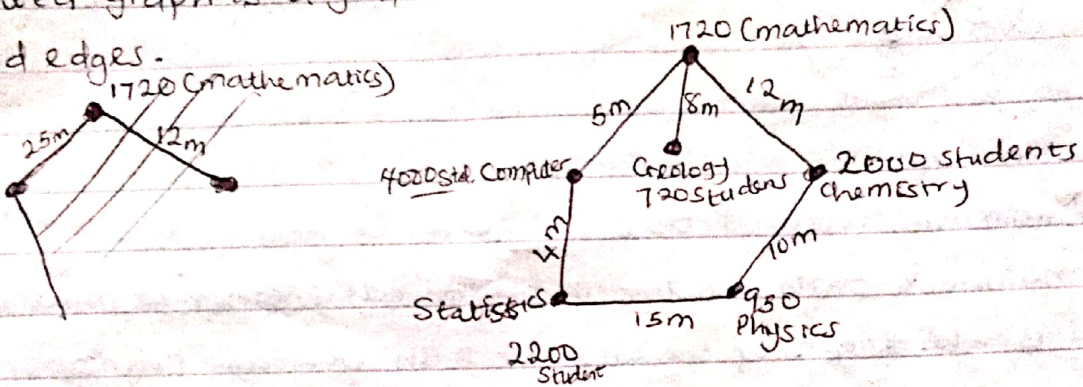 graph is
d edges.
1720 (mathematics)
25m
12m
1720 (mathematics)
5m
8m
12m
4000 Std. Computer
Geology
720 Students
2000 students
Chemistry
4m
10m
Statistics
15m
950
Physics
2200
Student